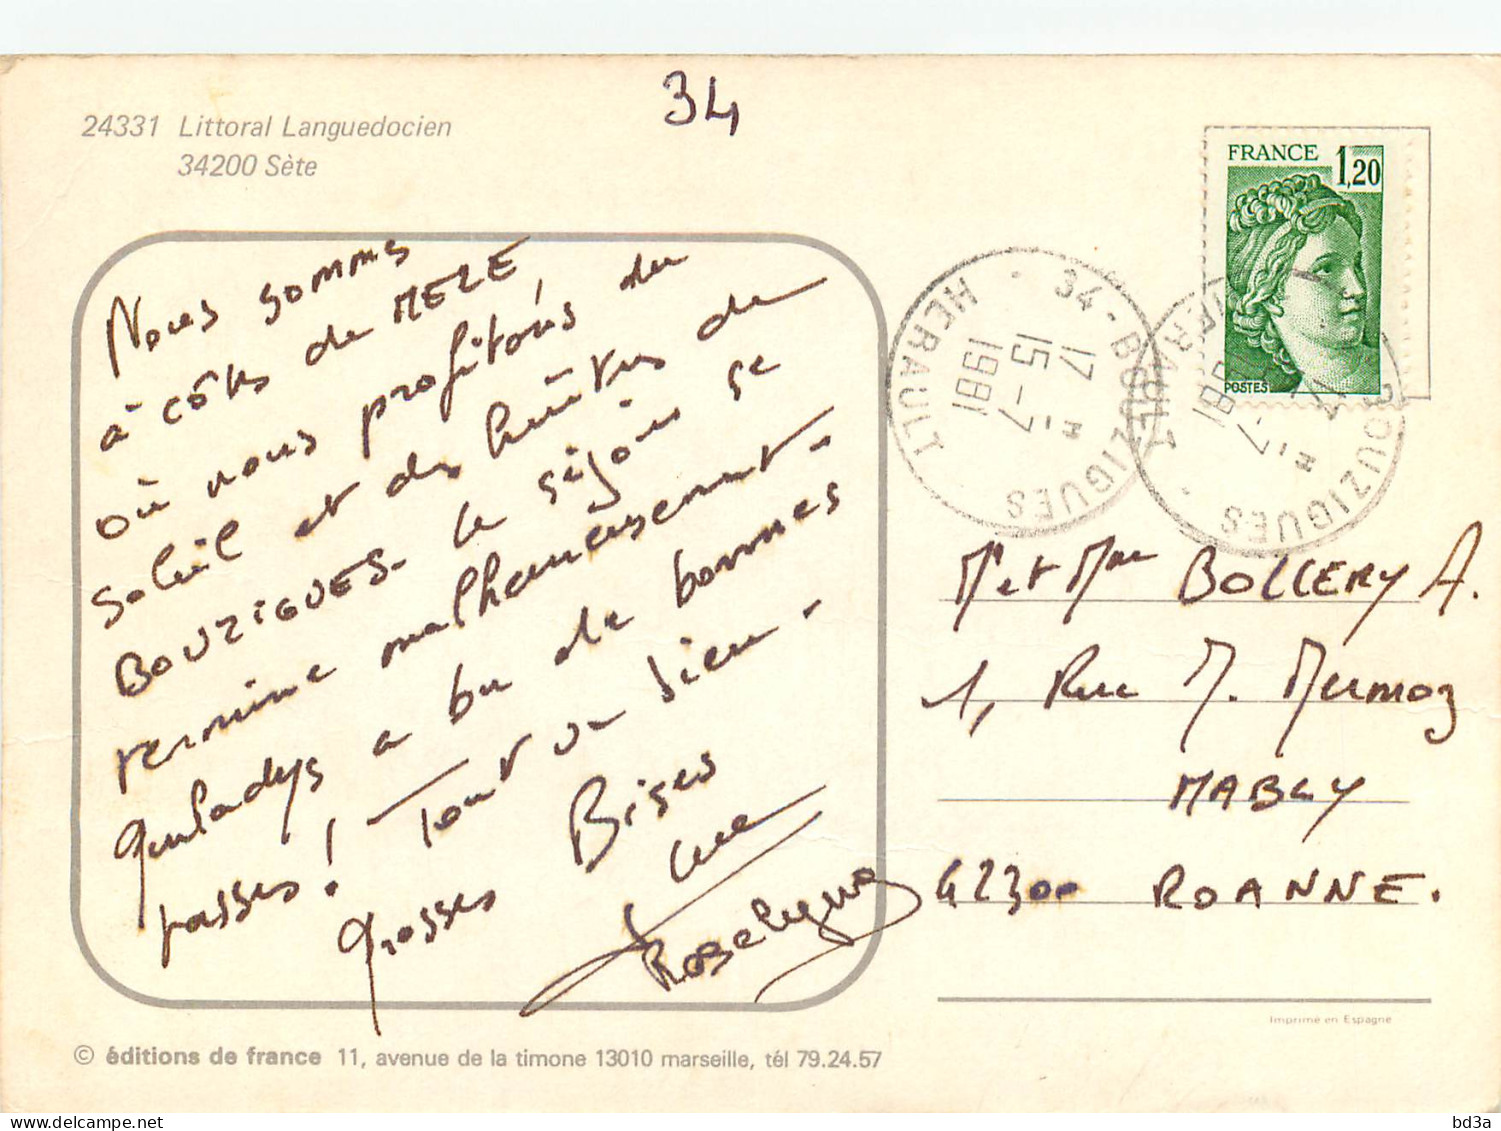 34
24331 Littoral Languedocien
34200 Sète
FRANCE 1,20
POSTES
34 - BOUZIGUES
17 H
15 - 7
1981
HERAULT
34 - BOUZIGUES
17 H
15 - 7
1981
HERAULT
Nous sommes
à côtés de MEZE
où nous profitons du
soleil et des huîtres de
BOUZIGUES. Le séjour se
termine malheureusement.
Guladys a bu de bonnes
tasses ! Tout va bien.
Grosses Bises
Luc
Roselyne
Mr et Mme BOLLERY A.
1, Rue M. Mermoz
MABLY
42300 ROANNE.
Imprimé en Espagne
© éditions de france 11, avenue de la timone 13010 marseille, tél 79.24.57
bd3a